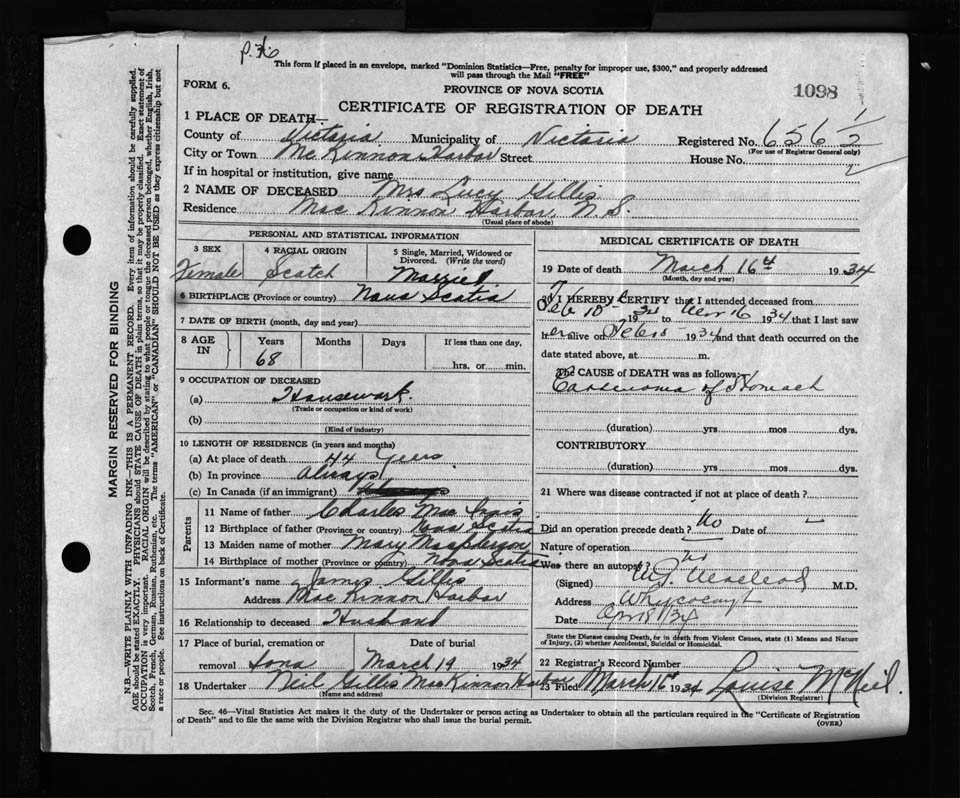 p. 36
This form if placed in an envelope, marked "Dominion Statistics—Free, penalty for improper use, $300," and properly addressed
will pass through the Mail "FREE"
FORM 6.
PROVINCE OF NOVA SCOTIA
1098
CERTIFICATE OF REGISTRATION OF DEATH
1 PLACE OF DEATH—
County of Victoria Municipality of Victoria Registered No. 656 1/2
(For use of Registrar General only)
City or Town McKinnon Harbor Street House No.
If in hospital or institution, give name
2 NAME OF DECEASED Mrs Lucy Gillis
Residence MacKinnon Harbor, N. S.
(Usual place of abode)
PERSONAL AND STATISTICAL INFORMATION
3 SEX 4 RACIAL ORIGIN 5 Single, Married, Widowed or
Divorced. (Write the word)
Female Scotch Married
6 BIRTHPLACE (Province or country) Nova Scotia
7 DATE OF BIRTH (month, day and year)
8 AGE IN Years Months Days If less than one day,
68 hrs. or min.
9 OCCUPATION OF DECEASED
(a) Housework.
(Trade or occupation or kind of work)
(b)
(Kind of industry)
10 LENGTH OF RESIDENCE (in years and months)
(a) At place of death 44 Years
(b) In province Always
(c) In Canada (if an immigrant)
Parents
11 Name of father Charles Mac
12 Birthplace of father (Province or country) Nova Scotia
13 Maiden name of mother Mary Macpherson
14 Birthplace of mother (Province or country) Nova Scotia
15 Informant's name James Gillis
Address MacKinnon Harbor
16 Relationship to deceased Husband
17 Place of burial, cremation or Date of burial
removal Iona March 19 1934
18 Undertaker Neil Gillis MacKinnon Harbor
(Name and address)
MEDICAL CERTIFICATE OF DEATH
19 Date of death March 16th 1934
(Month, day and year)
20 I HEREBY CERTIFY that I attended deceased from
Feb 10 1934 to 16 1934 that I last saw
her alive on Feb 1934 and that death occurred on the
date stated above, at m.
The CAUSE of DEATH was as follows:
Carcinoma of Stomach
(duration) yrs mos dys.
CONTRIBUTORY
(duration) yrs mos dys.
21 Where was disease contracted if not at place of death?
Did an operation precede death? No Date of
Nature of operation
Was there an autopsy? no
(Signed) Macleod M.D.
Address Whycocomagh
Date Apr 9/34
State the Disease causing Death, or in death from Violent Causes, state (1) Means and Nature
of Injury, (2) whether Accidental, Suicidal or Homicidal.
22 Registrar's Record Number
23 Filed March 1934 Louise McNeil.
(Division Registrar)
Sec. 46—Vital Statistics Act makes it the duty of the Undertaker or person acting as Undertaker to obtain all the particulars required in the "Certificate of Registration
of Death" and to file the same with the Division Registrar who shall issue the burial permit.
(OVER)
MARGIN RESERVED FOR BINDING
N.B.—WRITE PLAINLY WITH UNFADING INK—THIS IS A PERMANENT RECORD. Every item of information should be carefully supplied.
AGE should be stated EXACTLY. PHYSICIANS should STATE CAUSE OF DEATH in plain terms, so that it may be properly classified. Exact statement of
OCCUPATION is very important. RACIAL ORIGIN will be described by stating to what people or tongue the deceased person belonged, whether English, Irish,
Scotch, French, German, Russian, Ruthenian, etc. The terms "AMERICAN" or "CANADIAN" SHOULD NOT BE USED as they express citizenship but not
a race or people. See instructions on back of Certificate.